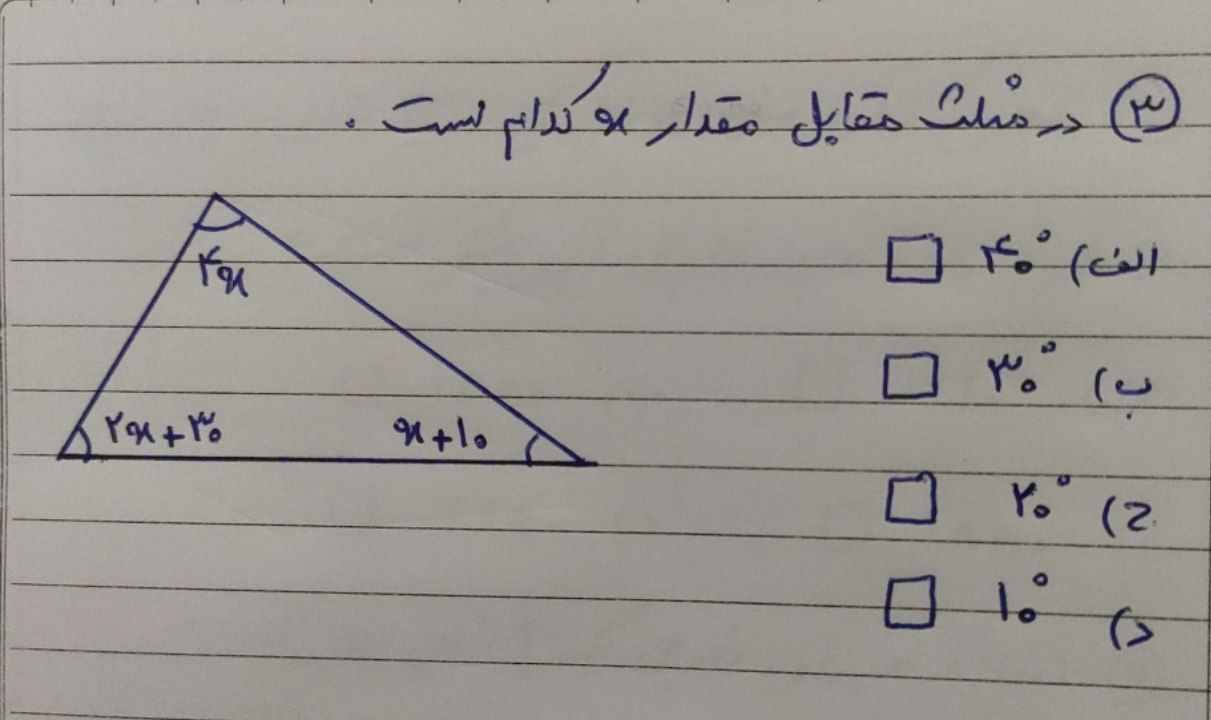 ۳ در مثلث مقابل مقدار x کدام است .
الف) ۴۰°
ب) ۳۰°
ج) ۲۰°
د) ۱۰°
۴x
۲x+۳۰
x+۱۰